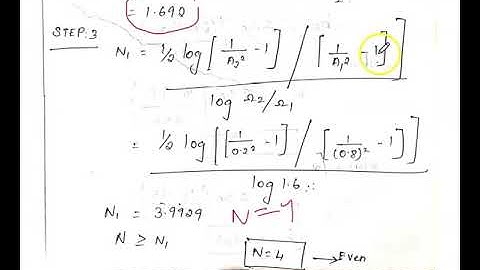 = 1.692
STEP:3
N₁ = ½ log [ [1/A₂² - 1] / [1/A₁² - 1] ]
log Ω₂/Ω₁
= ½ log [ [1/0.2² - 1] / [1/(0.8)² - 1] ]
log 1.6
N₁ = 3.9929 N=4
N ≥ N₁
N=4 → Even